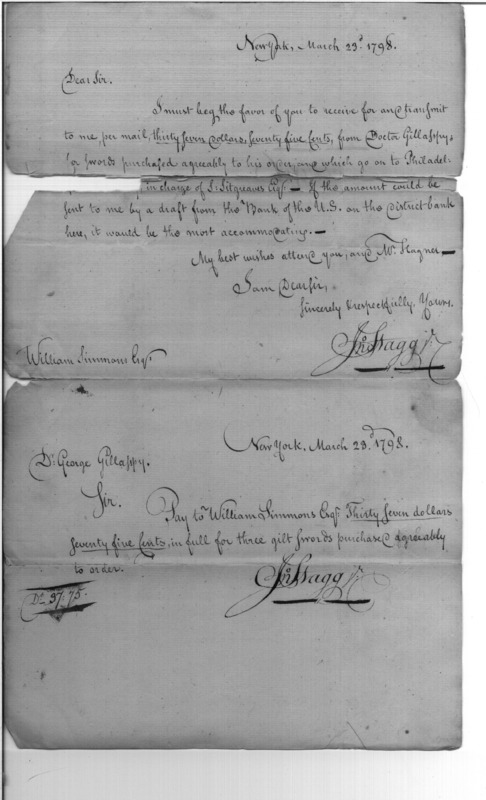 New York, March 23d. 1798.
Dear Sir.
I must beg the favor of you to receive for and transmit
to me, per mail, thirty seven dollars, seventy five Cents, from Doctor Gillaspy,
for swords purchased agreeably to his order, and which go on to Philadel-
in charge of S. Sitgreaves Esqr. — If the amount could be
sent to me by a draft from the Bank of the U.S. on the district bank
here, it would be the most accommodating. —
My best wishes attend you, and Mr. Hagner —
I am Dear Sir,
Sincerely & respectfully. Yours.
Jno Stagg Jr.
William Simmons Esqr.
New York. March 23d. 1798.
Dr. George Gillaspy.
Sir.
Pay to William Simmons Esqr. Thirty Seven dollars
seventy five Cents, in full for three gilt swords purchased agreeably
to order.
Jno Stagg Jr.
Ds. 37.75.